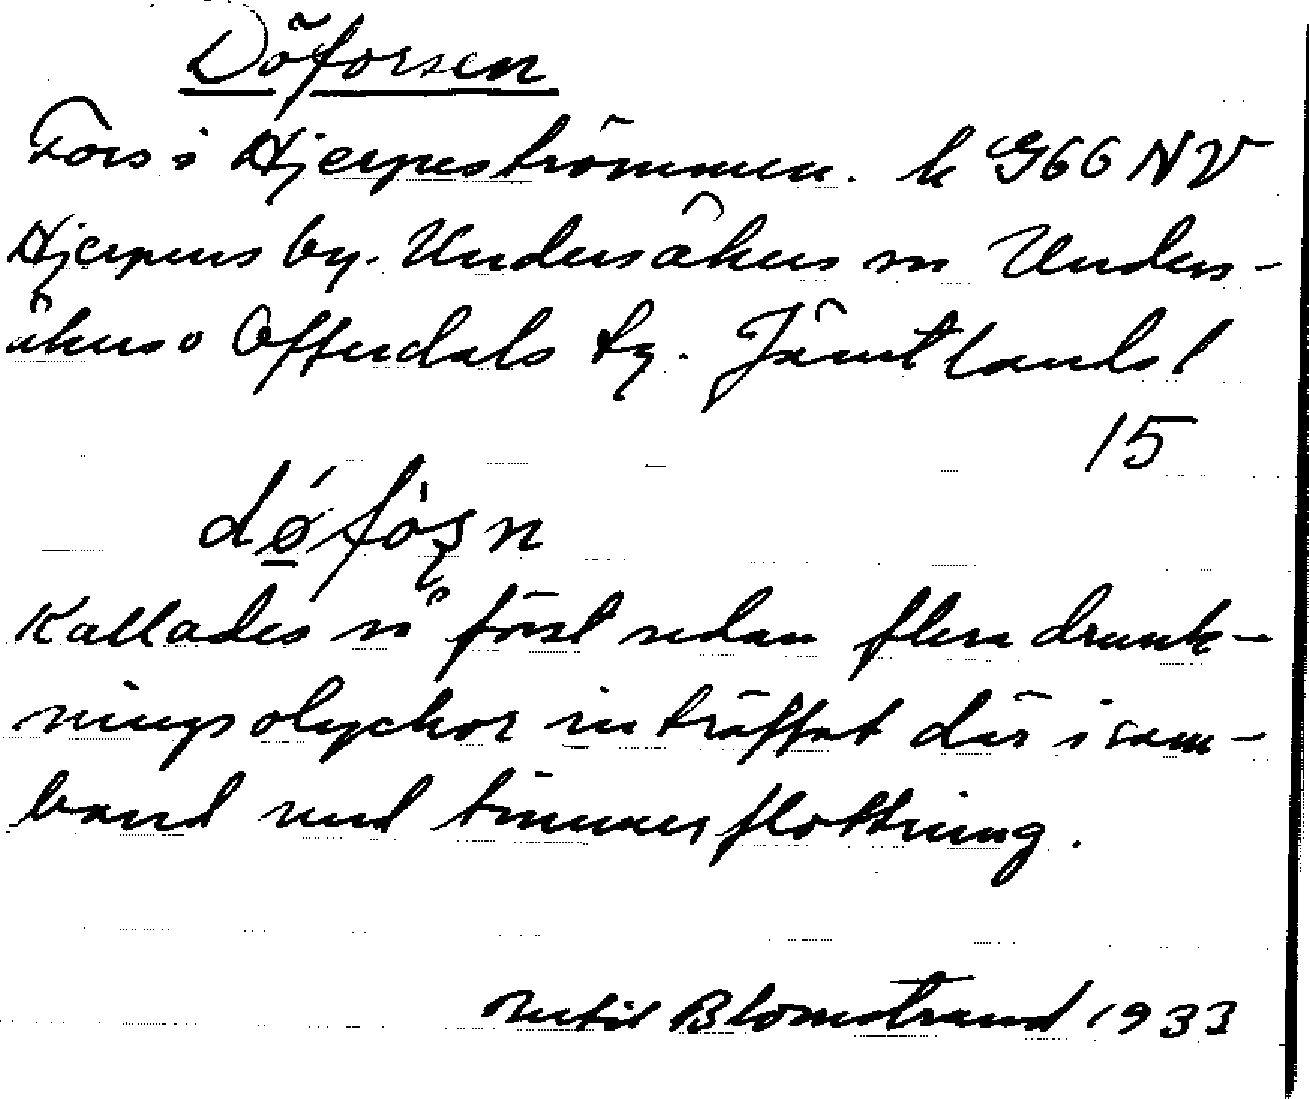 Döforsen
Fors i Hjerpeströmmen. k G66 NV
Hjerpens by. Undersåkers sn Unders-
åkers o Offerdals tg. Jämtlands l
15
dǿ̱fòʂn
Kallades så först sedan flera drunk-
ningsolyckor inträffat där i sam-
band med timmerflottning.
Bertil Blomstrand 1933